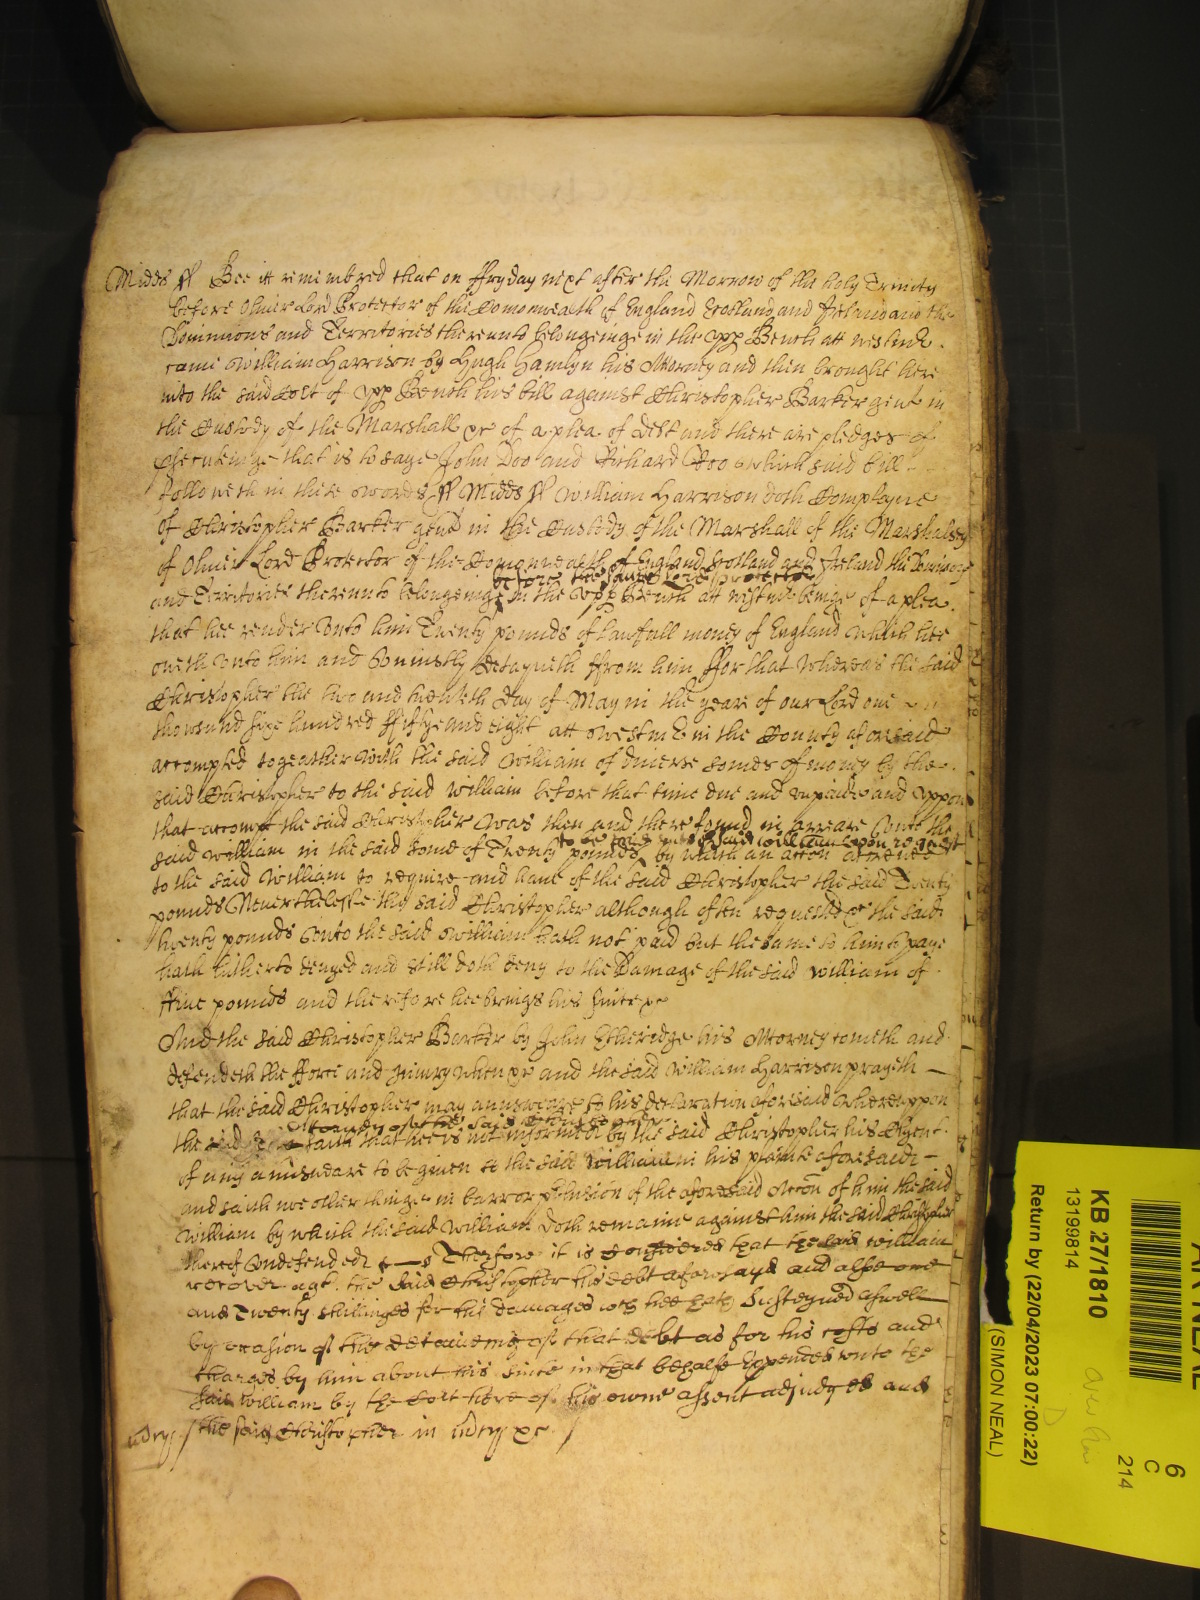 Midds ss Bee itt remembred that on ffryday next after the Morrow of the holy Trinity
before Oliver Lord Protector of the Comonwealth of England Scotland and Ireland and the
Dominions and Territories thereunto belongeinge in the upp Bench att westmr
came William Harrison by Hugh Hamlyn his Attorney and then brought here
into the said Cort of upp Bench his bill against Christopher Barker gent in
the Custody of the Marshall &c of a plea of debt and there are pledges of
prosecutinge that is to saye John Doo and Richard Roo which said bill
followeth in these words ss Midds ss William Harrison doth Complayne
of Christopher Barker gent in the Custody of the Marshall of the Marshalsey
of Oliver Lord Protector of the Comonwealth of England Scotland and Ireland the Dominions
before the said Lord Protector
and Territories thereunto belongeinge in the upp Bench att westmr beinge of a plea
that hee render unto him Twenty pounds of lawfull money of England which hee
oweth unto him and uniustly detayneth ffrom him ffor that whereas the said
Christopher the two and twentith day of May in the yeare of our Lord one
thowsand sixe hundred ffiftye and eight att westmr in the County aforesaid
accompted togeather with the said William of diverse somes of money by the
said Christopher to the said William before that time due and unpaide and uppon
that accompt the said Christopher was then and there found in arreare unto the
to be paid to the said William upon request
said William in the said some of Twenty pounds by which an accon accrued
to the said William to require and have of the said Christopher the said Twenty
pounds Neverthelesse the said Christopher although often requested &c the said
twenty pounds unto the said William hath not paid but the same to him to paye
hath hitherto denyed and still doth deny to the Damage of the said William of
ffive pounds and therefore hee brings his suite &c
And the said Christopher Barker by John Etheridge his Attorney cometh and
defendeth the fforce and iniury when &c and the said William Harrison prayeth
that the said Christopher may aunsweare to his declaration aforesaid whereuppon
Attorney of the said
the said saith that hee is not informed by the said Christopher his Clyent
of any aunsweare to be given to the said William in his plainte aforesaid
and saith noe other thinge in barr or p'clusion of the aforesaid Accon of him the said
William by which the said William doth remaine against him the said Christopher
thereof undefended Therfore it is Considered that the said William
recover agt. the said Christopher his debt aforesayd and alsoe one
and Twenty shillinges for his damages wch hee hath Susteyned aswell
by occasion of the deteineing of that debt as for his costs and
charges by him about his Suite in that behalfe Expended unto the
said William by the Cort here of his owne assent adiudged and
the said Christopher in mercy &c
mercy
KB 27/1810
13199814
Return by (22/04/2023 07:00:22)
(SIMON NEAL)
6
C
214